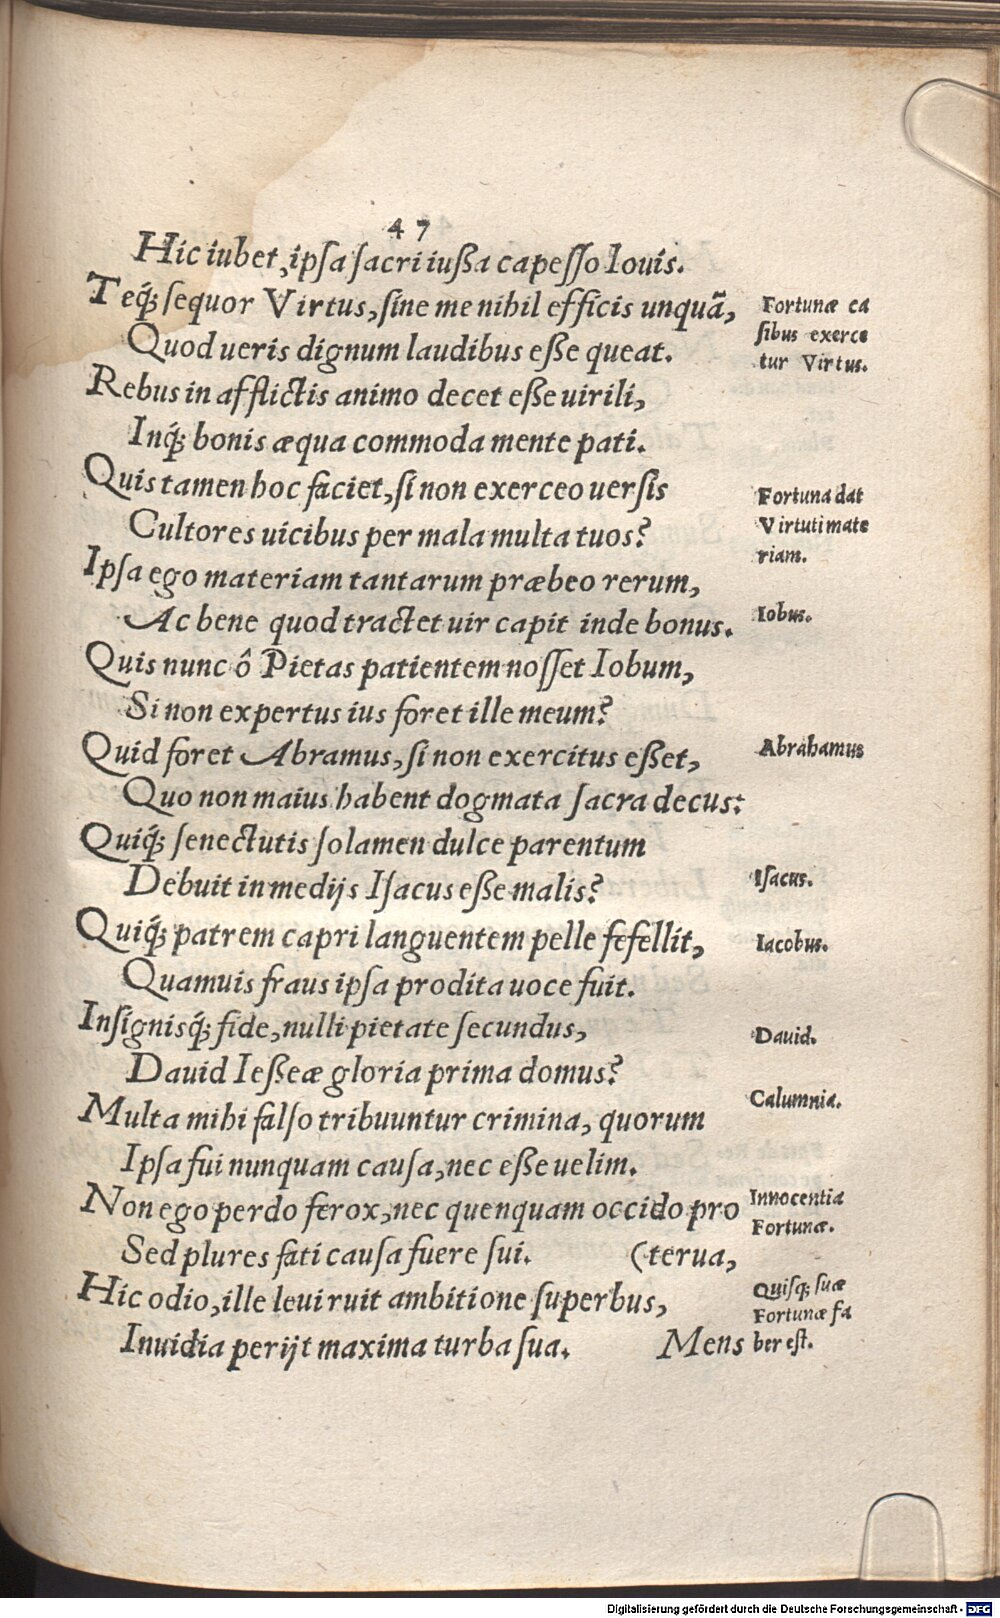 47
Hic iubet, ipſa ſacri iuſſa capeſſo Iouis.
Teq́; ſequor Virtus, ſine me nihil efficis unquã,
Fortunæ ca
ſibus exerce
tur Virtus.
Quod ueris dignum laudibus eſſe queat.
Rebus in afflictis animo decet eſſe uirili,
Inq́; bonis æqua commoda mente pati.
Quis tamen hoc faciet, ſi non exerceo uerſis
Fortuna dat
Virtuti mate
riam.
Cultores uicibus per mala multa tuos?
Ipſa ego materiam tantarum præbeo rerum,
Ac bene quod tractet uir capit inde bonus.
Iobus.
Quis nunc ô Pietas patientem noſſet Iobum,
Si non expertus ius foret ille meum?
Quid foret Abramus, ſi non exercitus eſſet,
Abrahamus
Quo non maius habent dogmata ſacra decus:
Quiq́; ſenectutis ſolamen dulce parentum
Debuit in medijs Iſacus eſſe malis?
Iſacus.
Quiq́; patrem capri languentem pelle fefellit,
Iacobus.
Quamuis fraus ipſa prodita uoce fuit.
Inſignisq́; fide, nulli pietate ſecundus,
Dauid.
Dauid Ieſſeæ gloria prima domus?
Multa mihi falſo tribuuntur crimina, quorum
Calumnia.
Ipſa fui nunquam cauſa, nec eſſe uelim.
Non ego perdo ferox, nec quenquam occido pro
Innocentia
Fortunæ.
Sed plures fati cauſa fuere ſui. (terua,
Hic odio, ille leui ruit ambitione ſuperbus,
Quiſq; ſuæ
Fortunæ fa
ber eſt.
Inuidia perijt maxima turba ſua. Mens
Digitalisierung gefördert durch die Deutsche Forschungsgemeinschaft - DFG